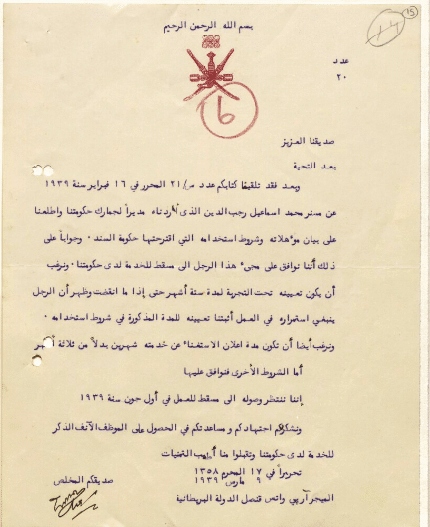 ١٥
بسم الله الرحمن الرحيم
6
عدد
٢٠
صديقنا العزيز
بعد التحية
وبعد فقد تلقينا كتابكم عدد س/٢١ المحرر في ١٦ فبراير سنة ١٩٣٩
عن مستر محمد اسماعيل رجب الدين الذي أردناه مديراً لجمارك حكومتنا واطلعنا
على بيان مؤهلاته وشروط استخدامه التي اقترحتها حكومة السند . وجواباً على
ذلك أننا نوافق على مجيء هذا الرجل الى مسقط للخدمة لدى حكومتنا . ونرغب
أن يكون تعيينه تحت التجربة لمدة ستة أشهر حتى إذا ما انقضت وظهر أن الرجل
ينبغي استمراره في العمل أثبتنا تعيينه للمدة المذكورة في شروط استخدامه .
ونرغب أيضا أن تكون مدة اعلان الاستغناء عن خدمته شهرين بدلاً من ثلاثة أشهر
أما الشروط الأخرى فنوافق عليها
إننا ننتظر وصوله الى مسقط للعمل في أول جون سنة ١٩٣٩
ونشكركم اجتهادكم و مساعدتكم في الحصول على الموظف الآنف الذكر
للخدمة لدى حكومتنا وتقبلوا منا أطيب التمنيات
تحريراً في ١٧ المحرم ١٣٥٨
٩ مارس ١٩٣٩
صديقكم المخلص
الميجر آر پي واتس قنصل الدولة البريطانية